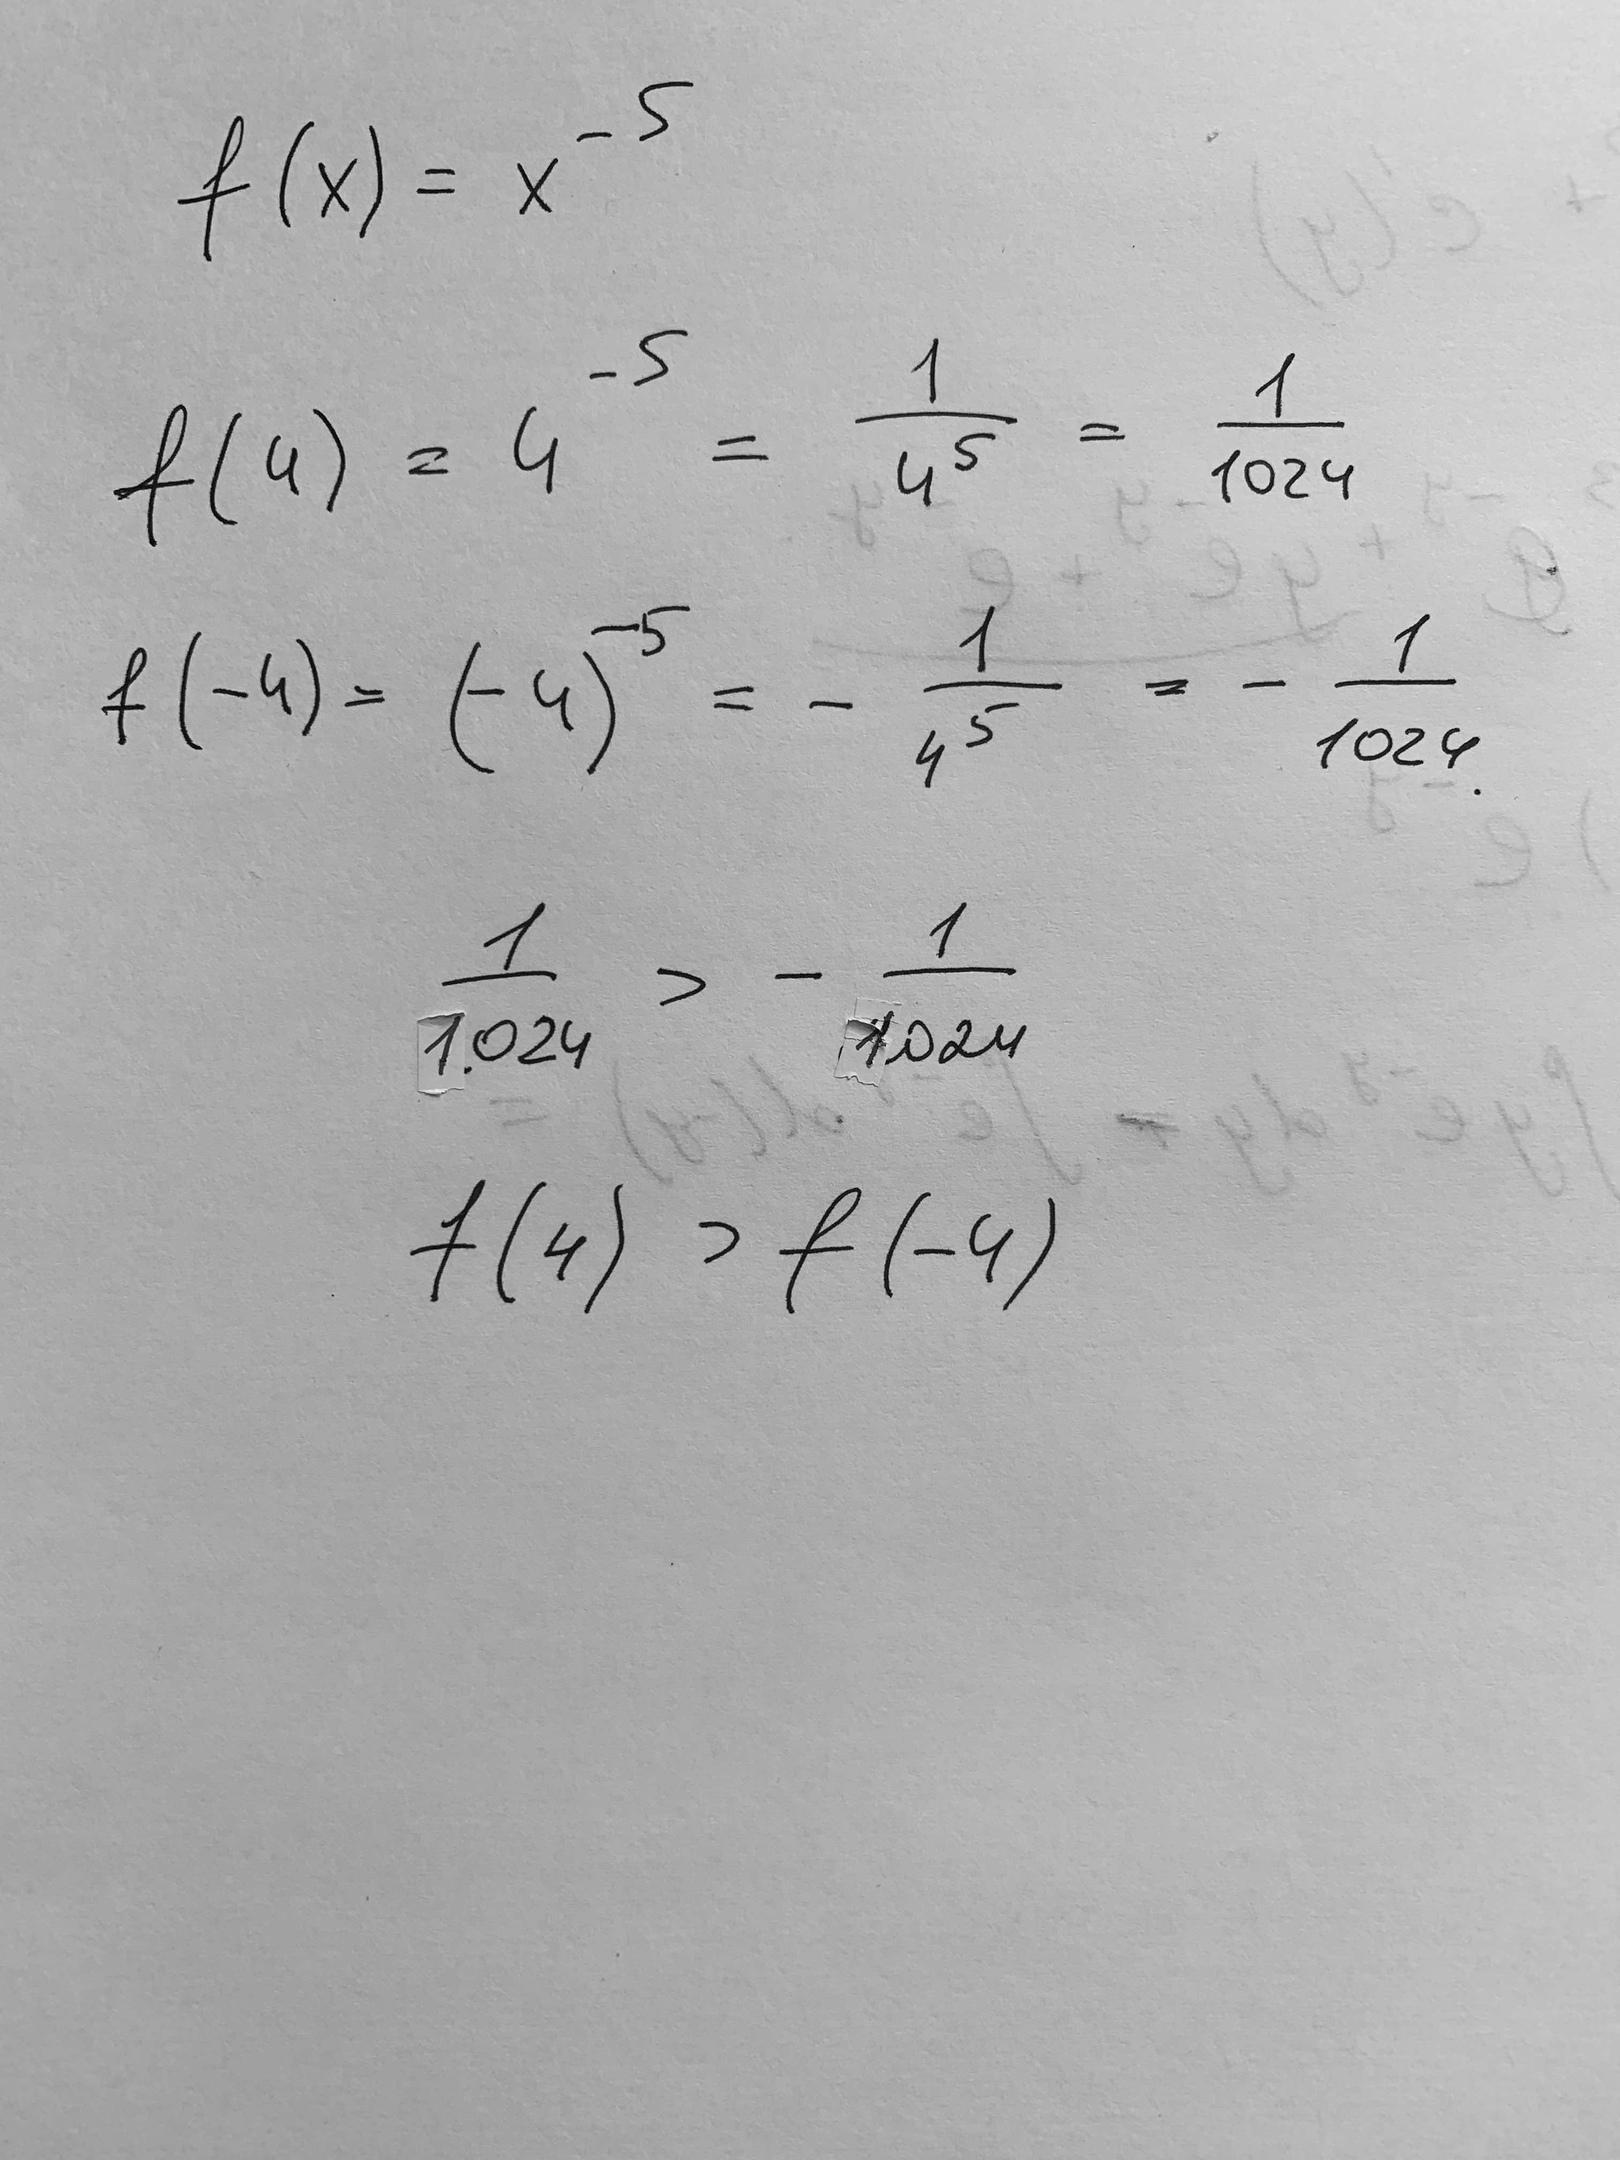 f(x) = x^-5
f(4) = 4^-5 = 1/4^5 = 1/1024
f(-4) = (-4)^-5 = - 1/4^5 = - 1/1024.
1/1.024 > - 1/1.024
f(4) > f(-4)